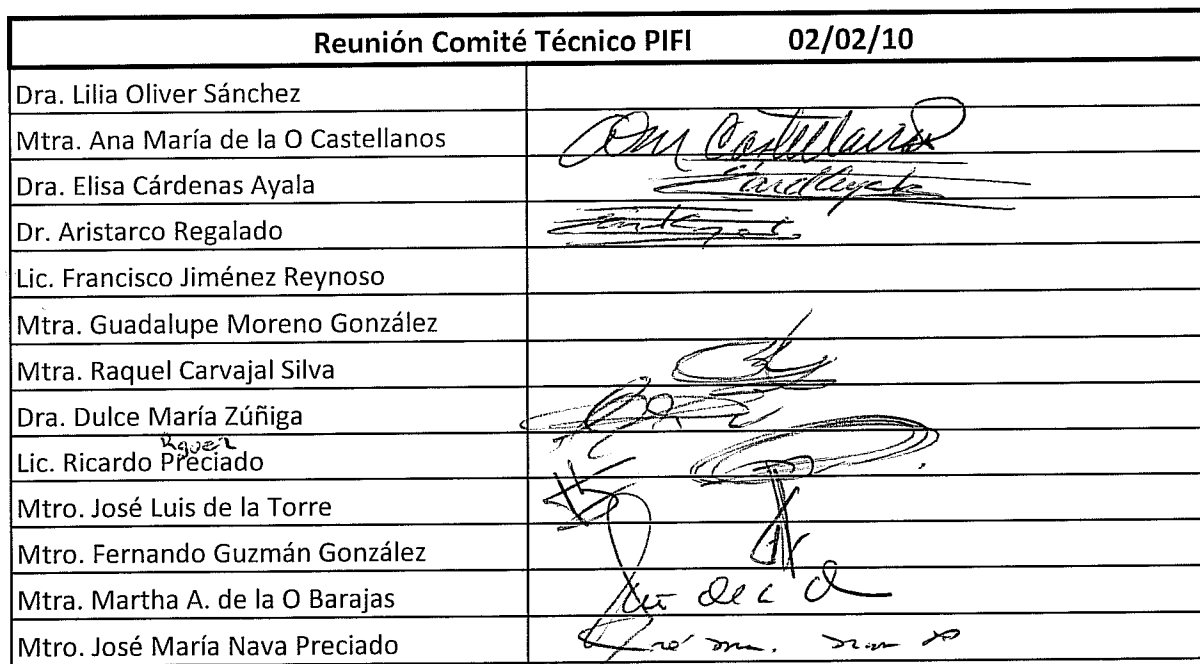 Reunión Comité Técnico PIFI 02/02/10
Dra. Lilia Oliver Sánchez
Mtra. Ana María de la O Castellanos
Dra. Elisa Cárdenas Ayala
Dr. Aristarco Regalado
Lic. Francisco Jiménez Reynoso
Mtra. Guadalupe Moreno González
Mtra. Raquel Carvajal Silva
Dra. Dulce María Zúñiga
Lic. Ricardo Preciado
Mtro. José Luis de la Torre
Mtro. Fernando Guzmán González
Mtra. Martha A. de la O Barajas
Mtro. José María Nava Preciado